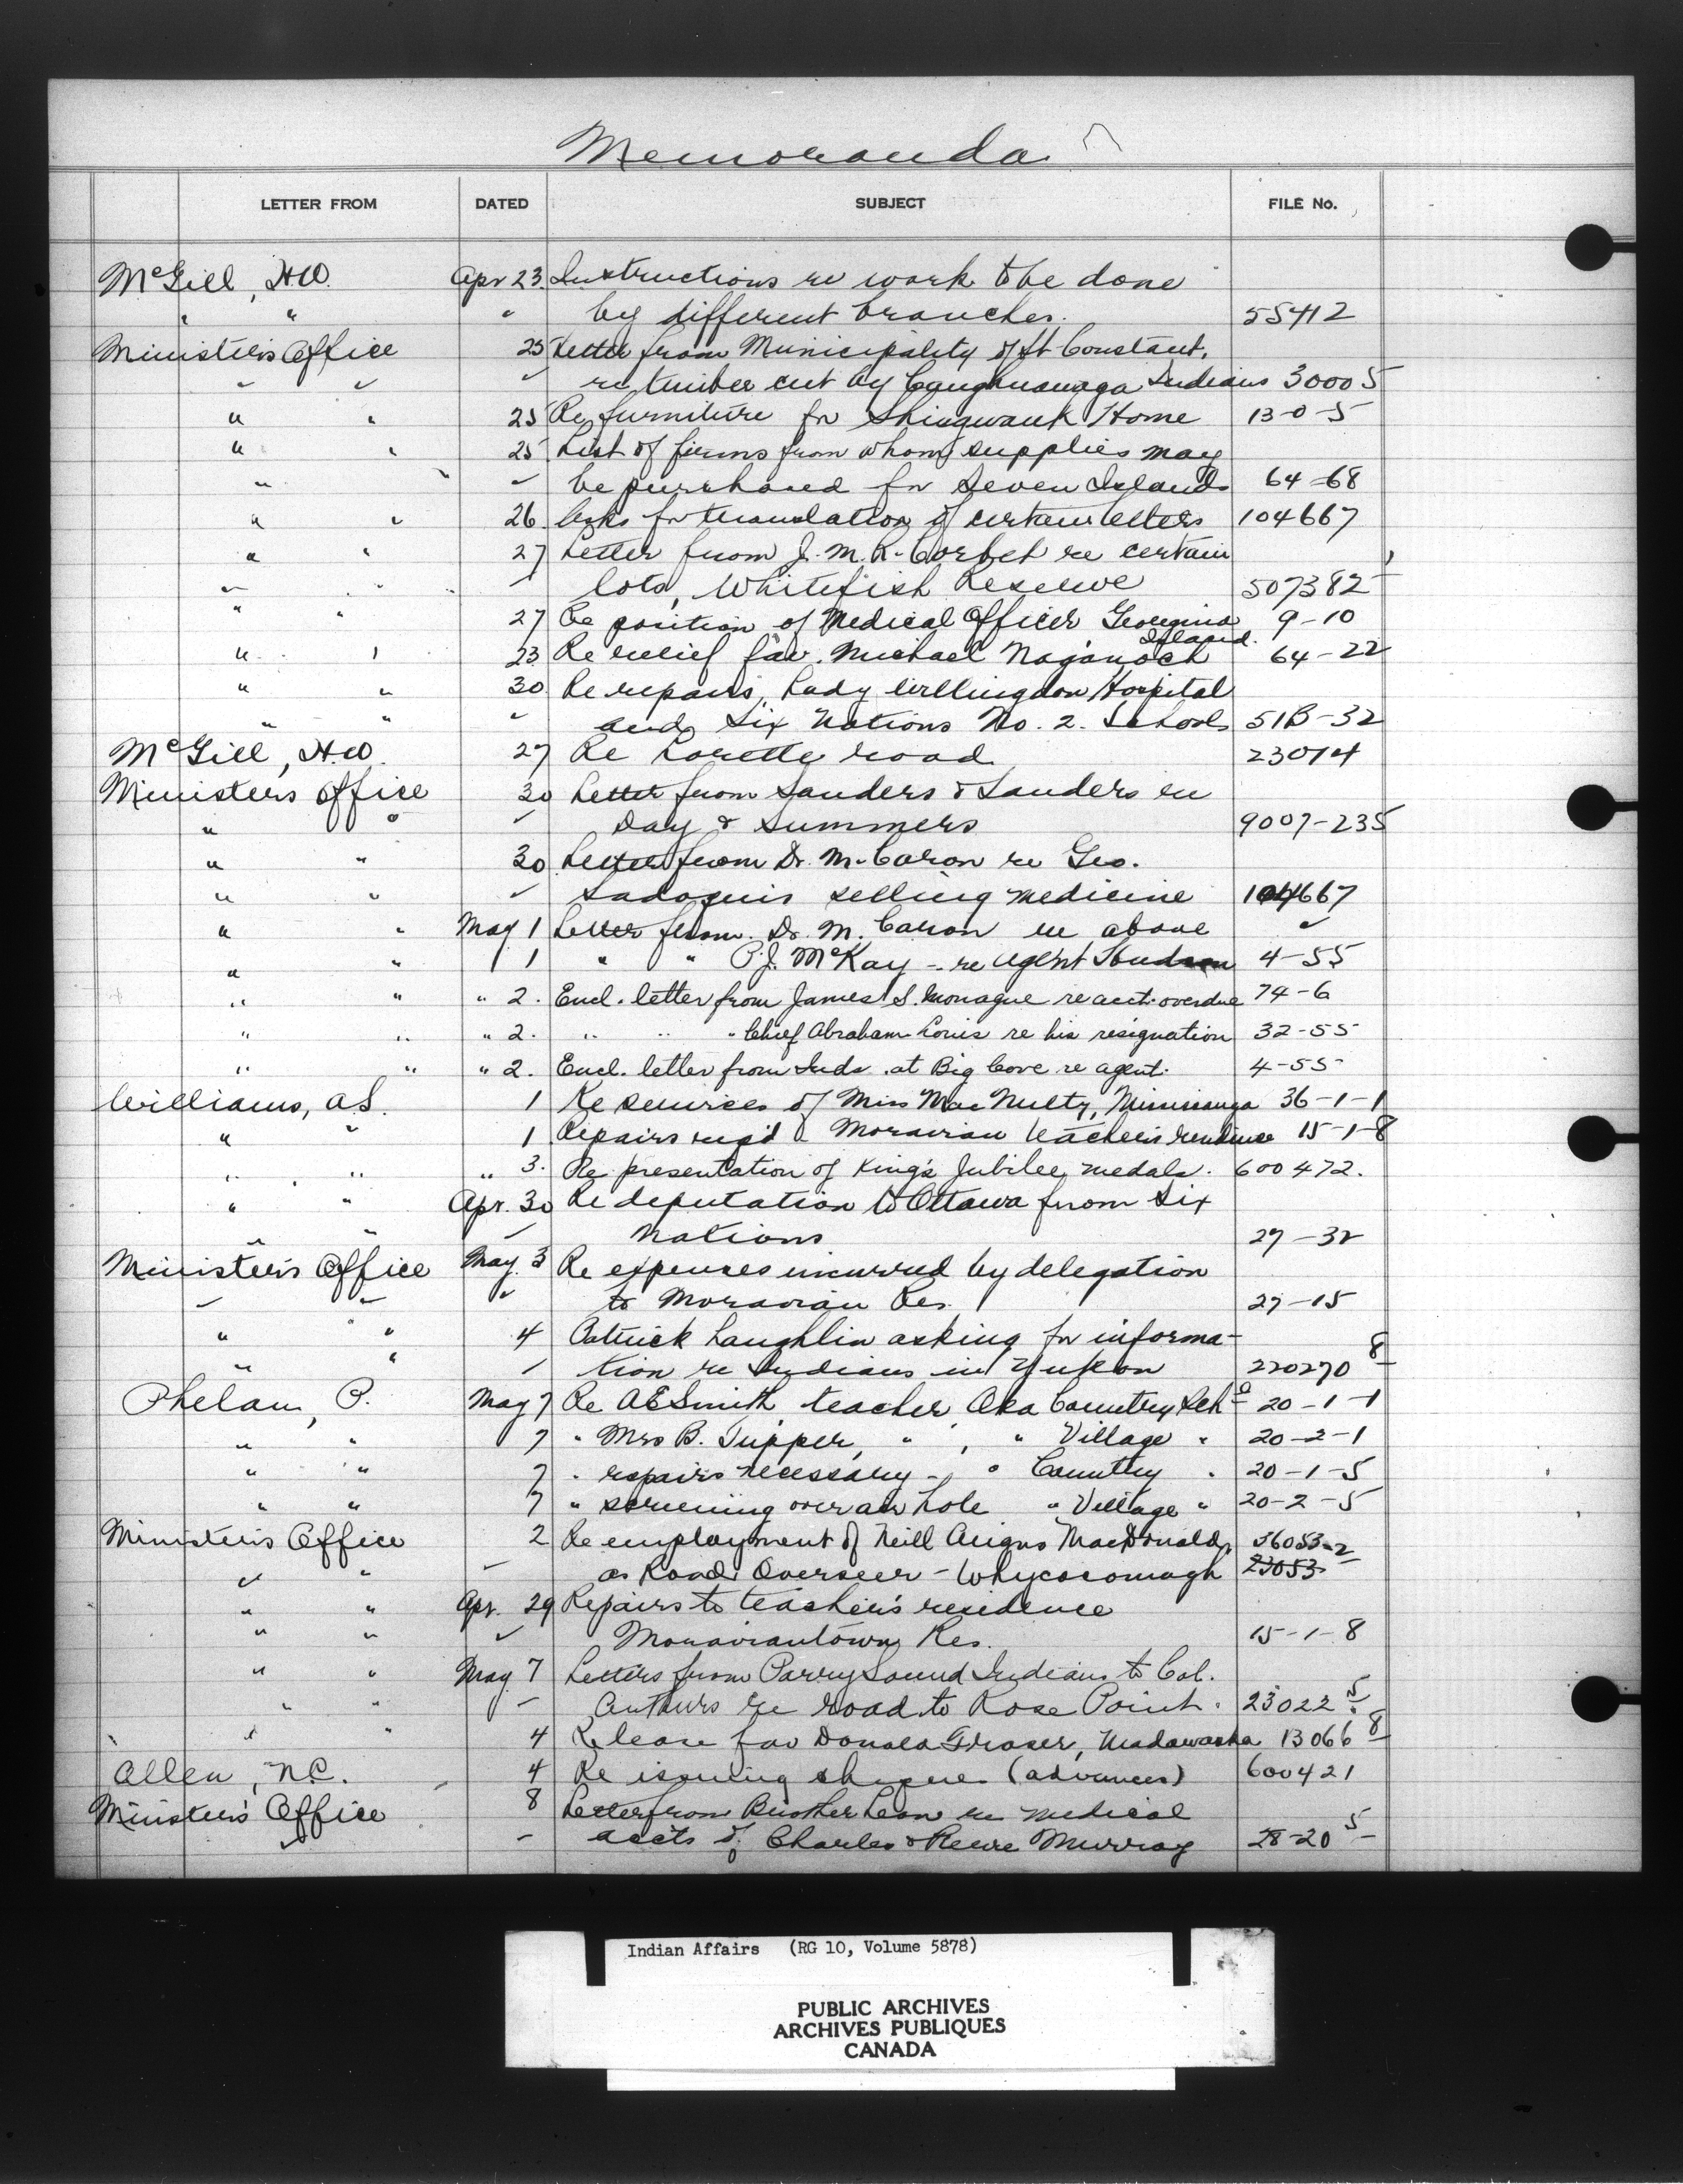 Memoranda
LETTER FROM DATED SUBJECT FILE No.
McGill, H.W. Apr 23. Instructions re work to be done
" " " by different branches. 55412
Minister's Office 25 Letter from Municipality of St Constant,
" " " re timber cut by Caughnawaga Indians 30005
" " 25 Re furniture for Shingwauk Home 13-0-5
" " 25 List of firms from whom supplies may
" " " be purchased for Seven Islands 64-68
" " 26. Asks for translation of certain letters 104667
" " 27 Letter from J. M. R. Corbet re certain
" " " lots, Whitefish Reserve 507382
" " 27 Re position of Medical Officer Georgina 9-10
Island.
" " 23 Re relief fav. Michael Naganoch 64-22
" " 30 Re repairs, Lady Willingdon Hospital
" " " and Six Nations No. 2. School 51B-32
McGill, H.W. 27 Re Lorette road 23014
Ministers Office 30 Letter from Sanders & Sanders re
" " " Day & Summers 9007-235
" " 30 Letter from Dr. M. Caron re Geo.
" " " selling medicine 104667
" " May 1 Letter from Dr. M. Caron re above "
" " 1 " " P.J. McKay - re Agent Hudson 4-55
" " " 2. Encl. letter from James S. Monague re acct. overdue 74-6
" " " 2. " " " Chief Abraham Louis re his resignation 32-55
" " " 2. Encl. letter from Inds. at Big Cove re agent. 4-55
Williams, A.S. 1 Re services of Miss MacNulty, Mississauga 36-1-1
" " 1 Repairs req'd Moravian teacher's residence 15-1-8
" " " 3. Re presentation of King's Jubilee medals. 600472.
" " Apr. 30 Re deputation to Ottawa from Six
" " " Nations 27-32
Minister's Office May 3 Re expenses incurred by delegation
" " " to Moravian Res. 27-15
" " 4 Patrick Laughlin asking for informa-
" " " tion re Indians in Yukon 220270 8
Phelan, P. May 7 Re A E Smith teacher, Oka Country Schl 20-1-1
" " 7 " Mrs B. Tupper, " , " Village " 20-2-1
" " 7 " repairs necessary - " Country " 20-1-5
" " 7 " screening over air hole " Village " 20-2-5
Minister's Office 2 Re employment of Neill Angus MacDonald, 36053-2
" " " as Road Overseer - Whycocomagh 23053
" " Apr. 29 Repairs to teacher's residence
" " " Moraviantown Res. 15-1-8
" " May 7 Letters from Parry Sound Indians to Col.
" " " Arthurs re road to Rose Point. 23022 5
" " 4 Re lease fav Donald Fraser, Madawaska 13066 8
Allen, N.C. 4 Re issuing cheques (advances) 600421
Minister's Office 8 Letter from Brother Leon re medical
" " accts of Charles & Murray 28-20 5
Indian Affairs (RG 10, Volume 5878)
PUBLIC ARCHIVES
ARCHIVES PUBLIQUES
CANADA